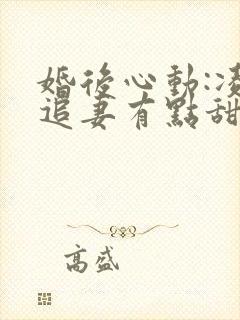 婚後心動:凌
追妻有點甜
高盛